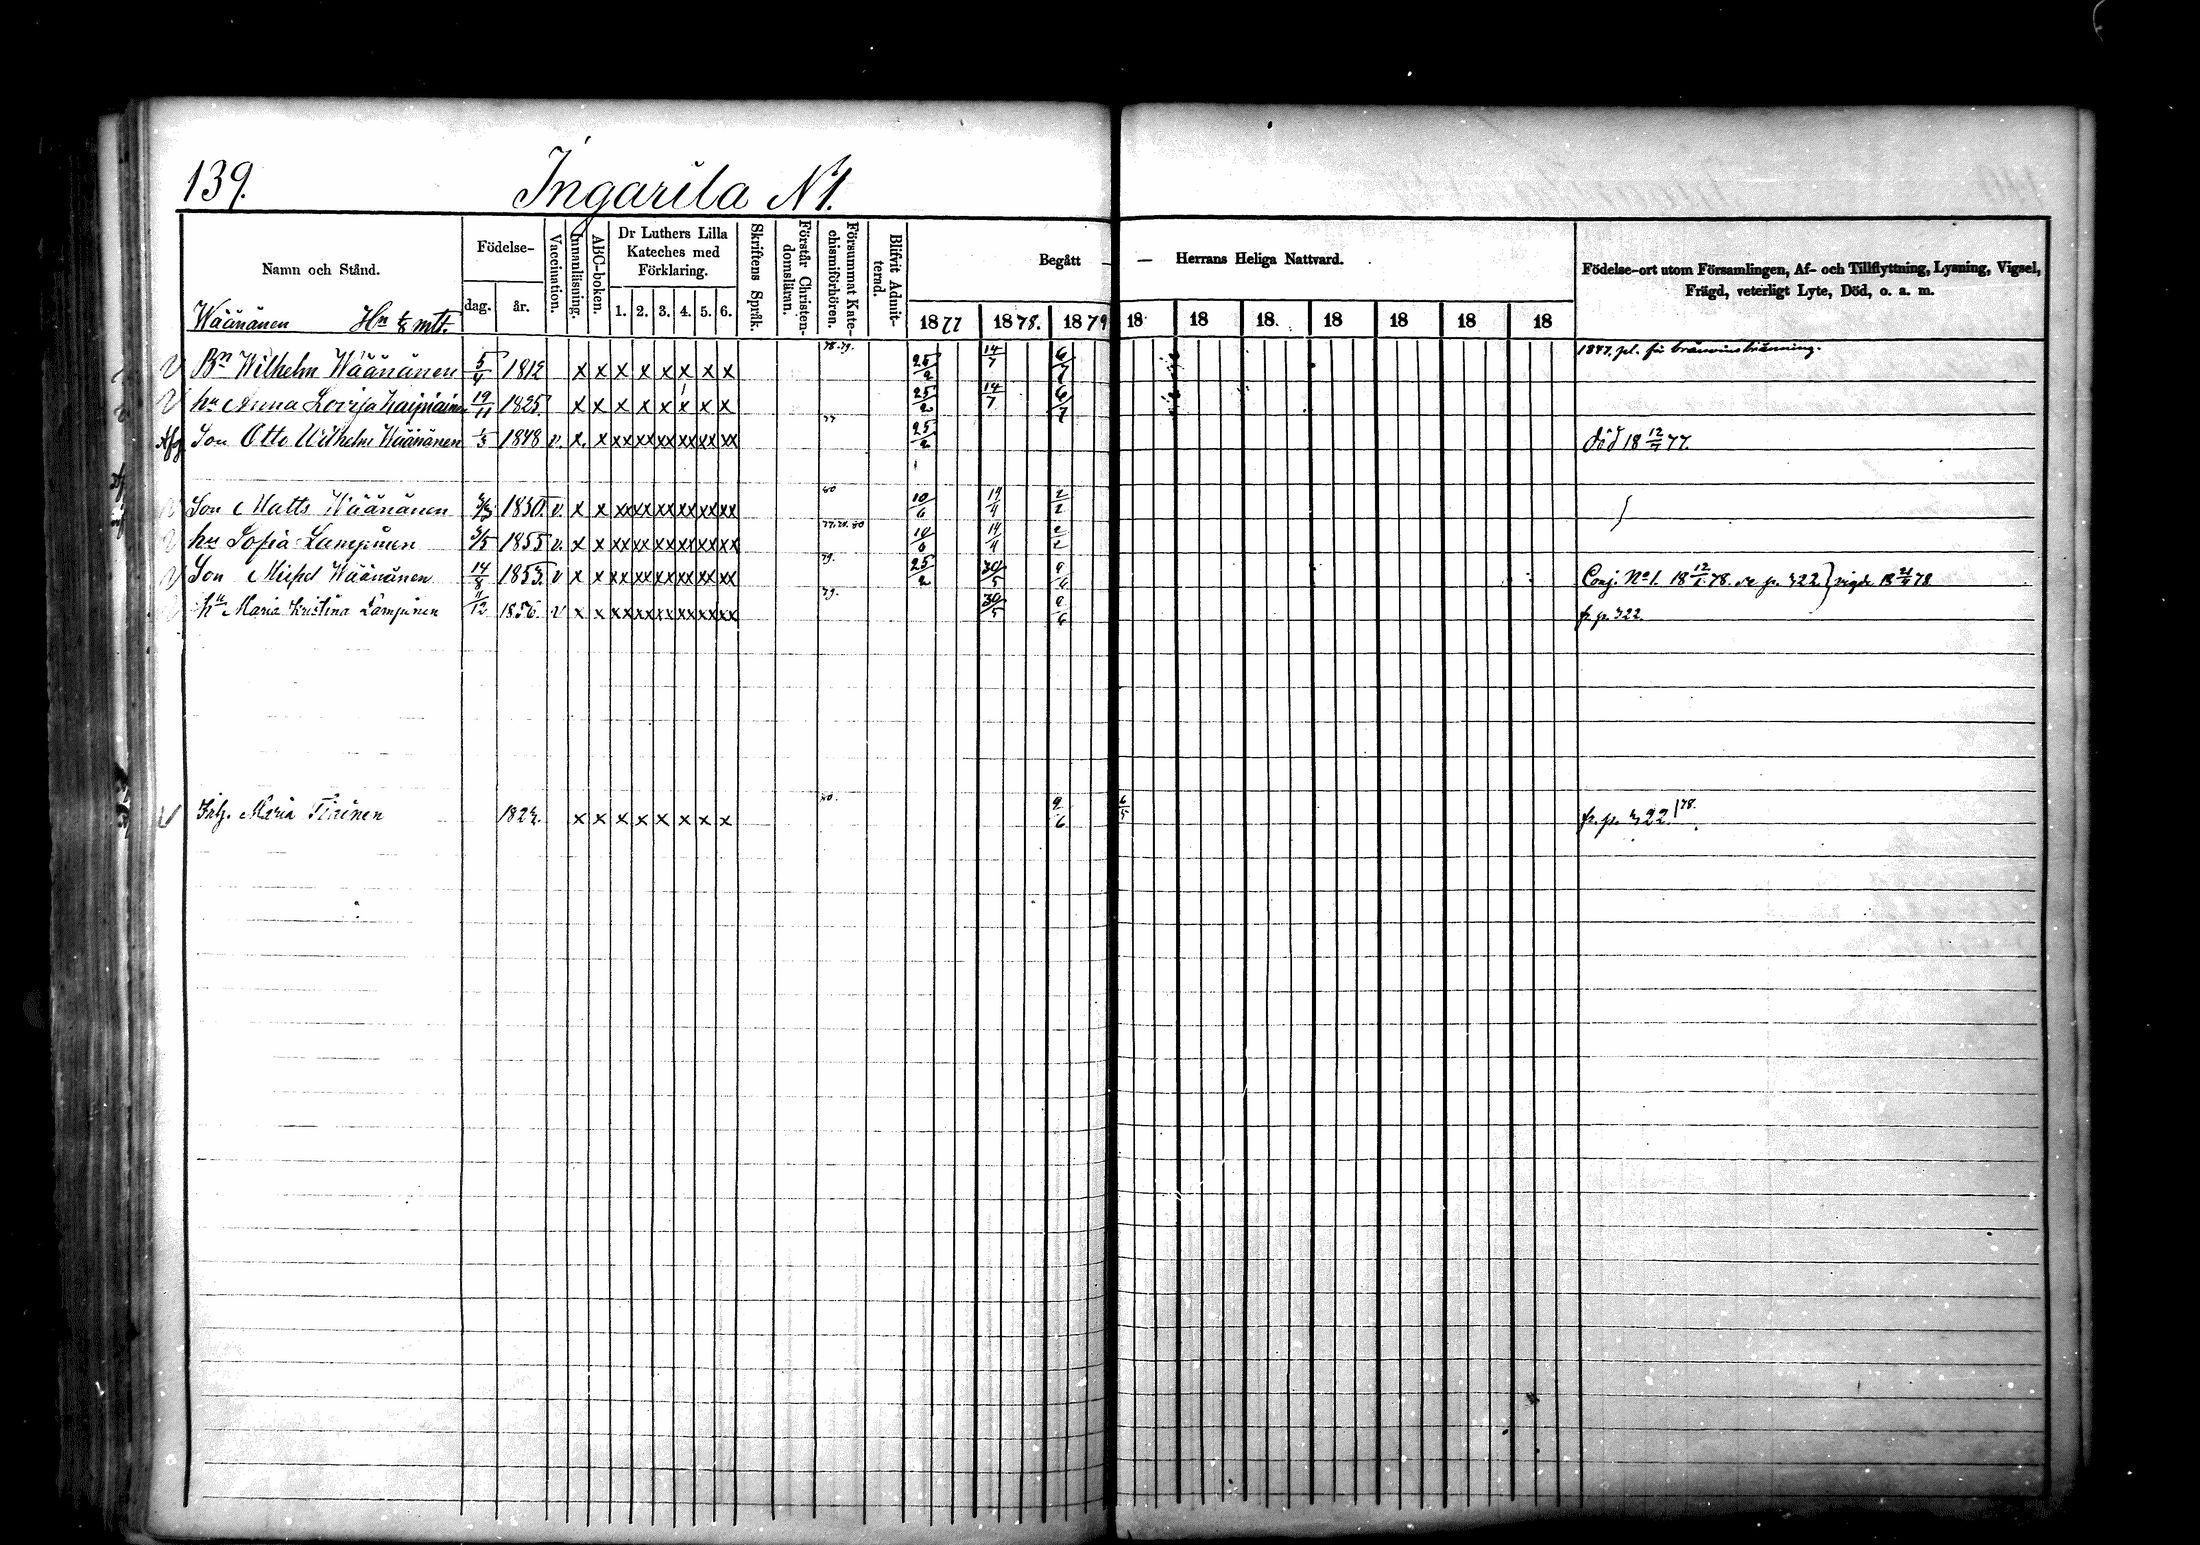 139.
Ingarila N1.
Namn och Stånd. Födelse- Vaccination. Innanläsning. ABC-boken. Dr Luthers Lilla Kateches med Förklaring. Skriftens Språk. Förstår Christendomsläran. Försummat Katechismiförhören. Blifvit Admitterad. Begått — Herrans Heliga Nattvard. Födelse-ort utom Församlingen, Af- och Tillflyttning, Lysning, Vigsel, Frägd, veterligt Lyte, Död, o. a. m.
dag. år. 1. 2. 3. 4. 5. 6. 1877 1878. 1879 18 18 18. 18 18 18 18
Wäänänen Hn mtl.
V Bn Wilhelm Wäänänen 5/4 1812 x x x x x x x x 78.79. 25/2 14/7 6/7 1847. pl. för bränvinsbränning.
V hu Anna Lovisa 19/11 1825 x x x x x x x x 25/2 14/7 6/7
Afg Son Otto Wilhelm Wäänänen 1/3 1848 v. x. x xx xx xx xx xx xx 77 25/2 död 18 12/7 77.
V Son Matts Wäänänen 1850. v. x x xx xx xx xx xx xx 80 10/6 14/4 2/2
V hu Sofia Lampinen 1855 v. x x xx xx xx xx xx xx 10/6 14/4 2/2
V Son Michel Wäänänen 14/8 1853. v x x xx xx xx xx xx xx 79. 25/2 30/5 9/6 Conj. No 1. 18 12/1 78. se p. 322. } vigde 18 21/4 78
hu Maria Kristina Lampinen 11/12 1856. v x x xx xx xx xx xx xx 79. 30/5 9/6 fr. p. 322.
V Inh. Maria Tiainen 1824. x x x x x x x x 80. 9/6 6/5 fr. p. 322. /78.